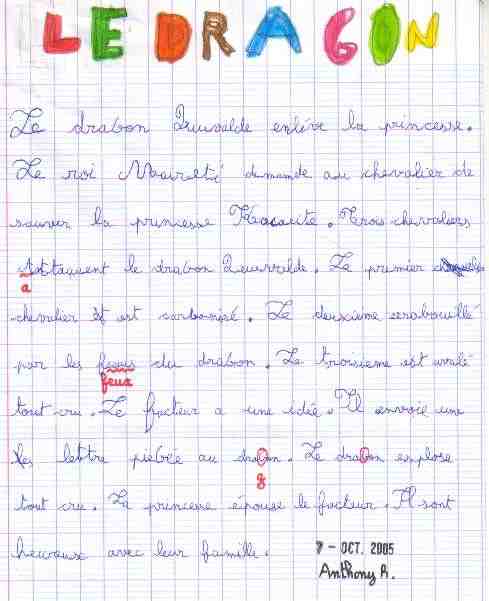 LE DRAGON
Le drabon Querralde enlève la princesse.
Le roi demande au chevalier de
sauver la princesse . Trois chevaliers
Attaquent le drabon Querralde. Le premier
a
chevalier et est carbonisé. Le deuxième serabouillé
par les du drabon. Le troisième est avalé
feux
tout cru. Le facteur a une idée. Il envoie une
les lettre piébée au drabon. Le drabon explose
g
tout cru. La princesse épouse le facteur. Il sont
heureux avec leur famille.
7 - OCT. 2005
Anthony R.